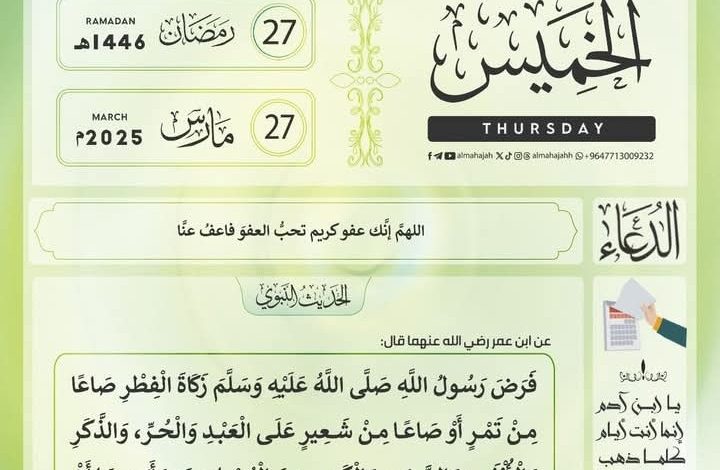 الخميس
THURSDAY
almahajah almahajahh +9647713009232
27 رمضان RAMADAN 1446هـ
27 مارس MARCH 2025م
الدُعَاء
اللهمَّ إنَّك عفو كريم تحبُّ العفوَ فاعفُ عنَّا
الحديث النبوي
عن ابن عمر رضي الله عنهما قال:
فَرَضَ رَسُولُ اللَّهِ صَلَّى اللَّهُ عَلَيْهِ وَسَلَّمَ زَكَاةَ الْفِطْرِ صَاعًا
مِنْ تَمْرٍ أَوْ صَاعًا مِنْ شَعِيرٍ عَلَى الْعَبْدِ وَالْحُرِّ، وَالذَّكَرِ
يا ابن آدم
إنما أنت أيام
كلما ذهب